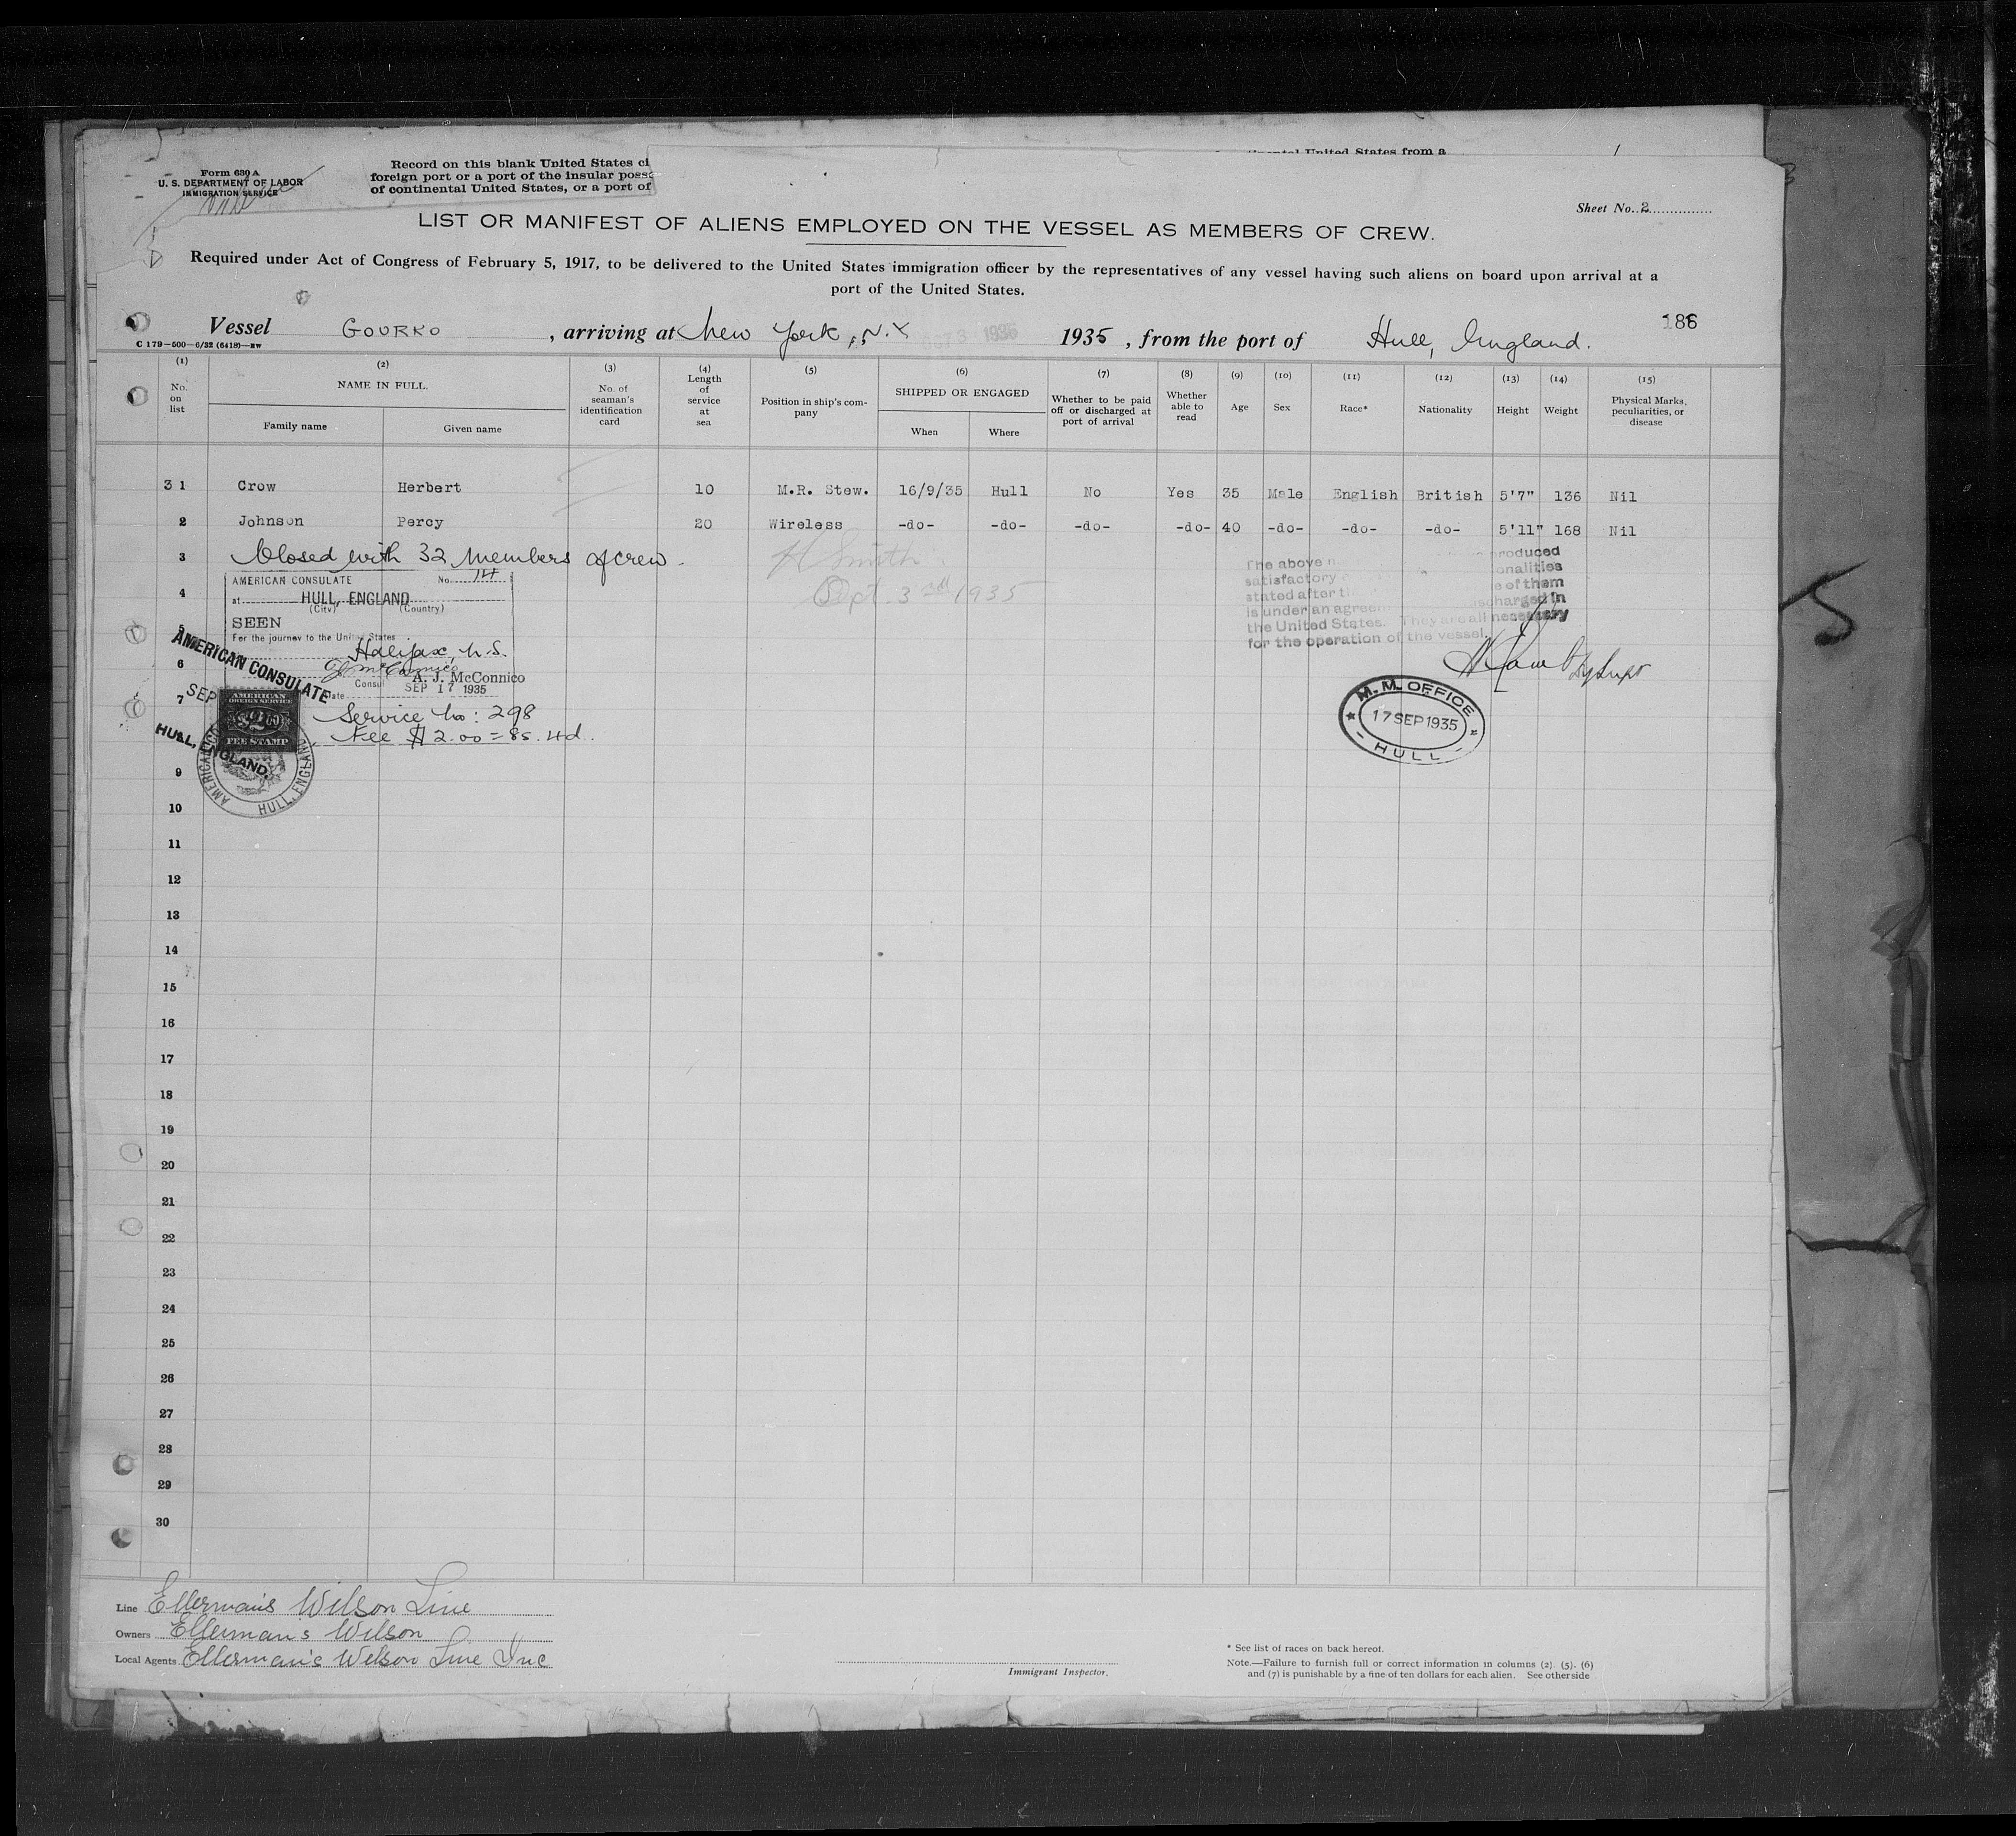 Form 630 A
U. S. DEPARTMENT OF LABOR
IMMIGRATION SERVICE
Record on this blank United States ci
foreign port or a port of the insular posse
of continental United States, or a port of
United States from a
Sheet No. 2
LIST OR MANIFEST OF ALIENS EMPLOYED ON THE VESSEL AS MEMBERS OF CREW.
Required under Act of Congress of February 5, 1917, to be delivered to the United States immigration officer by the representatives of any vessel having such aliens on board upon arrival at a
port of the United States.
186
Vessel GOURKO , arriving at New York, N.Y 1935 , from the port of Hull, England.
C 179-500-6/32 (6418)-BW
(1) (2) (3) (4) (5) (6) (7) (8) (9) (10) (11) (12) (13) (14) (15)
No. on list NAME IN FULL. No. of seaman's identification card Length of service at sea Position in ship's company SHIPPED OR ENGAGED Whether to be paid off or discharged at port of arrival Whether able to read Age Sex Race* Nationality Height Weight Physical Marks, peculiarities, or disease
Family name Given name When Where
31 Crow Herbert 10 M.R. Stew. 16/9/35 Hull No Yes 35 Male English British 5'7" 136 Nil
2 Johnson Percy 20 Wireless -do- -do- -do- -do- 40 -do- -do- -do- 5'11" 168 Nil
3 Closed with 32 members of crew.
H Smith
Oct. 3rd 1935
The above n produced
satisfactory onalities
stated after th e of them
is under an agreem scharged in
the United States. They are all necessary
for the operation of the vessel.
AMERICAN CONSULATE No. 14
at HULL, ENGLAND
(City) (Country)
4
SEEN
5
For the journey to the United States
Halifax, N.S.
6
A. J. McConnico
Consul
SEP 17 1935
AMERICAN CONSULATE
SEP
HULL, ENGLAND.
7
AMERICAN
FOREIGN SERVICE
$2.00
FEE STAMP
HULL, ENGLAND
Service No: 298
Fee $2.00 = 8s. 4d.
M. M. OFFICE
17 SEP 1935
HULL
9
10
11
12
13
14
15
16
17
18
19
20
21
22
23
24
25
26
27
28
29
30
Line Ellerman's Wilson Line
Owners Ellermans Wilson
Local Agents Ellerman's Wilson Line Inc
Immigrant Inspector.
* See list of races on back hereof.
Note.—Failure to furnish full or correct information in columns (2), (5), (6)
and (7) is punishable by a fine of ten dollars for each alien. See other side